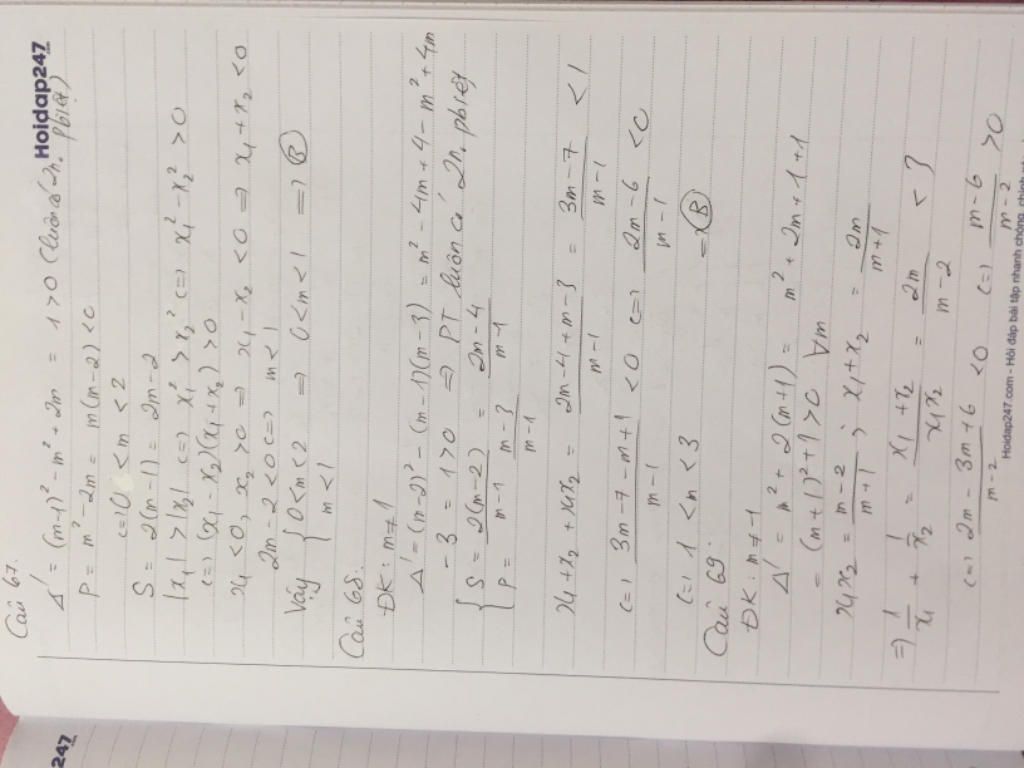 Hoidap247
Câu 67.
Δ' = (m-1)² - m² + 2m = 1 > 0 (luôn có 2n₀ pbiệt)
P = m² - 2m = m(m-2) < 0
<=> 0 < m < 2
S = 2(m-1) = 2m-2
|x₁| > |x₂| <=> x₁² > x₂² <=> x₁² - x₂² > 0
<=> (x₁ - x₂)(x₁ + x₂) > 0
x₁ < 0, x₂ > 0 => x₁ - x₂ < 0 => x₁ + x₂ < 0
2m - 2 < 0 <=> m < 1
Vậy { 0 < m < 2 ; m < 1 => 0 < m < 1 => B
Câu 68.
ĐK: m ≠ 1
Δ' = (m-2)² - (m-1)(m-3) = m² - 4m + 4 - m² + 4m
- 3 = 1 > 0 => PT luôn có 2n₀ pbiệt
{ S = 2(m-2)/m-1 = 2m-4/m-1
P = m-3/m-1
x₁ + x₂ + x₁x₂ = 2m-4+m-3/m-1 = 3m-7/m-1 < 1
<=> 3m-7-m+1/m-1 < 0 <=> 2m-6/m-1 < 0
<=> 1 < m < 3 => B
Câu 69.
ĐK: m ≠ -1
Δ' = m² + 2(m+1) = m² + 2m + 1 + 1
= (m+1)² + 1 > 0 ∀m
x₁x₂ = m-2/m+1 ; x₁ + x₂ = 2m/m+1
=> 1/x₁ + 1/x₂ = x₁+x₂/x₁x₂ = 2m/m-2 < 3
<=> 2m-3m+6/m-2 < 0 <=> m-6/m-2 > 0
Hoidap247.com - Hỏi đáp bài tập nhanh chóng, chính
247